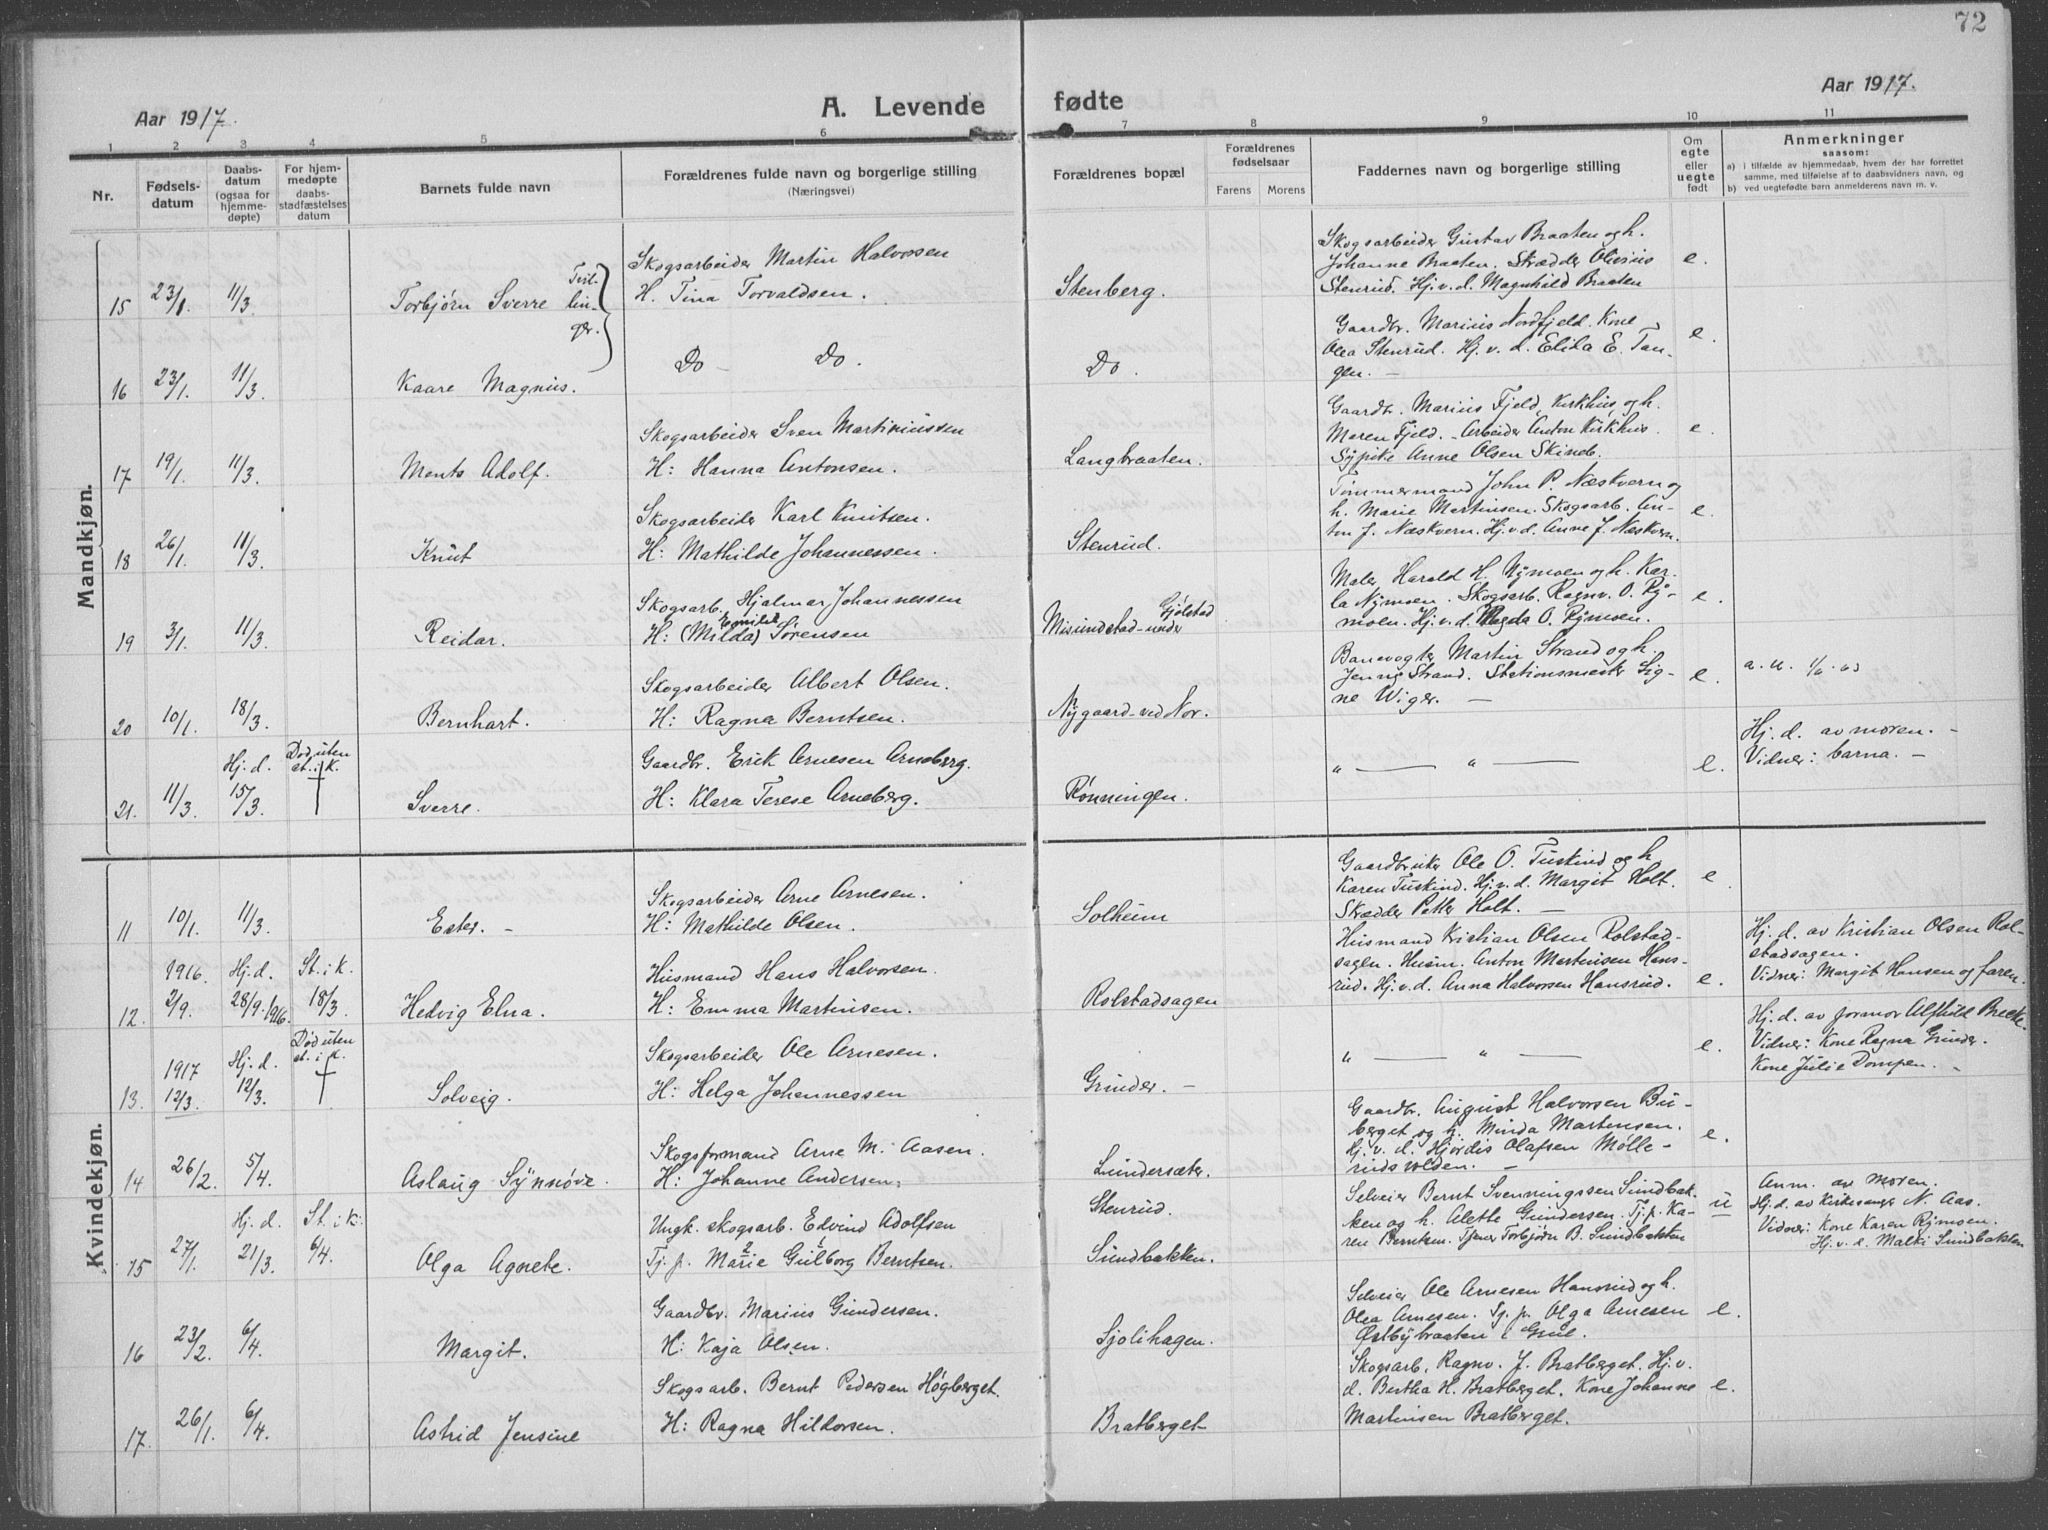 72
Aar 1917.
A. Levende fødte
Aar 1917.
1 2 3 4 5 6 7 8 9 10 11
Nr.
Fødsels-
datum
Daabs-
datum
(ogsaa for
hjemme-
døpte)
For hjem-
medøpte
daabs-
stadfæstelses
datum
Barnets fulde navn
Forældrenes fulde navn og borgerlige stilling
(Næringsvei)
Forældrenes bopæl
Forældrenes
fødselsaar
Farens Morens
Faddernes navn og borgerlige stilling
Om
egte
eller
uegte
født
Anmerkninger
saasom:
a) i tilfælde av hjemmedaab, hvem der har forrettet
samme, med tilføielse af to daabsvidners navn, og
b) ved uegtefødte børn anmelderens navn m. v.
Mandkjøn.
15 23/1 11/3. Torbjørn Sverre
Tvil-
lin-
ger.
Skogsarbeider Martin Halvorsen
H. Tina Torvaldsen.
Stenberg.
Skogsarbeider Gustav Braaten og h.
Johanne Braaten. Skrædder Olivius
Stenrud. Hj. v. d. Magnhild Braaten
e.
16 23/1. 11/3. Kaare Magnus.
Do – Do.
Do.
Gaardbr. Marius Nordfjeld. Kone
Olea Stenrud. Hj. v. d. Elida E. Tan-
gen. –
e.
17 19/1. 11/3. Mento Adolf.
Skogsarbeider Sven Martiniussen
H: Hanna Antonsen.
Langbraaten.
Gaardbr. Marius Fjeld, Kirkhus og h.
Maren Fjeld. – Arbeider Anton Kirkhus.
Sypike Anne Olsen Skineb.
e.
18 26/1. 11/3. Knut
Skogsarbeider Karl Knutsen.
H: Mathilde Johannessen.
Stenrud.
Tømmermand John P. Næstvern og
h. Marie Martinsen. Skogsarb. An-
ton J. Næskvern. Hj. v. d. Anne J. Næskvern.
e.
19 3/1. 11/3. Reidar.
Skogsarb. Hjalmar Johannessen
Emilde
H: (Milda) Sørensen
Gjölstad
Misundstad-under
Maler Harald H. Nymoen og h. Kar-
la Nymoen. Skogsarb. Ragnv. O. Ry-
moen. Hj. v. d. Magda O. Rymoen.
e.
20 10/1. 18/3. Bernhart.
Skogsarbeider Albert Olsen.
H: Ragna Berntsen.
Nygaard-ved Nor.
Banevogter Martin Strand og h.
Jenny Strand. Stationsmester Sig-
ne Wiger. –
e.
a. u. 1/6. 63
21. 11/3.
Hj. d.
15/3.
Død uten
st. i K.
Sverre.
Gaardbr. Erik Arnesen Arneberg.
H: Klara Terese Arneberg.
Rønningen.
" — " —
e.
Hj. d. av moren. –
Vidner: barna. –
Kvindekjøn.
11 10/1. 11/3. Ester. –
Skogsarbeider Arne Arnesen.
H: Mathilde Olsen.
Solheim
Gaardbruker Ole O. Tuskind og h.
Karen Tuskind. Hj. v. d. Margit Holt.
Skrædder Petter Holt. –
e.
12.
1916.
2/9.
Hj. d.
28/9. 1916.
St. i k.
18/3.
Hedvig Elna.
Husmand Hans Halvorsen.
H: Emma Martinsen.
Rolstadsagen
Husmand Kristian Olsen Rolstad-
sagen. Husm. Anton Martinsen Hans-
rud. Hj. v. d. Anna Halvorsen Hansrud.
e.
Hj. d. av Kristian Olsen Rol-
stadsagen.
Vidner: Margit Hansen og faren.
13.
1917
12/3.
Hj. d.
12/3.
Død uten
st. i k.
Solveig.
Skogsarbeider Ole Arnesen.
H: Helga Johannessen
Grinder. –
" — " —
e.
Hj. d. av formor Alfhild Brekke.
Vidner: Kone Ragna Grinder.
Kone Julie Dompen. –
14 26/2. 5/4. Aslaug Synnøve.
Skogsformand Arne M. Aasen.
H: Johanne Andersen.
Lundersæter.
Gaardbr. August Halvorsen Bu-
berget og h. Minda Martensen.
Hj. v. d. Hjørdis Olafsen Mølle-
rudsvolden. –
e.
15 27/1.
Hj. d.
21/3.
St. i k:
6/4.
Olga Agnete.
Ungk. skogsarb. Edvind Adolfsen
Tj. p. Marie Gulborg Berntsen.
Stenrud.
Sundbakken.
Selveier Bernt Svenningssen Sundbak-
ken og h. Alette Gundersen. Tj. p. Ka-
ren Berntsen. Tjener Torbjørn B. Sundbakken
u
Anm. av moren.
Hj. d. av Kirkesanger N. Aas.
Vidner: Kone Karen Rymoen.
Hj. v. e. Malki Sundbakken
16 23/2. 6/4. Margit.
Gaardbr. Marius Gundersen.
H: Kaja Olsen.
Sjolihagen.
Selveier Ole Arnesen Hansrud og h.
Olea Arnesen. Tj. p. Olga Arnesen
Østbybraaten i Grue.
e.
17. 26/1. 6/4. Astrid Jensine
Skogsarb. Bernt Pedersen Høgberget.
H: Ragna Hildorsen.
Bratberget
Skogsarb. Ragnv. J. Bratberget. Hj. v.
d. Bertha H. Bratberget. Kone Johanne
Martinsen Bratberget.
e.